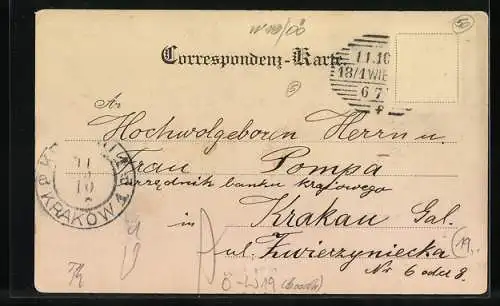 W 19/ÖÖ
50
Correspondenz-Karte.
11.10
18/1 WIEN
6 7
5
An
Hochwolgeboren Herrn u.
Frau Pompa
urzędnik banku krajowego
in Krakau Gal.
ul. Zwierzyniecka
Nr. 6 oder 8.
KRAKÓW
11
10
19.
Ö-W19